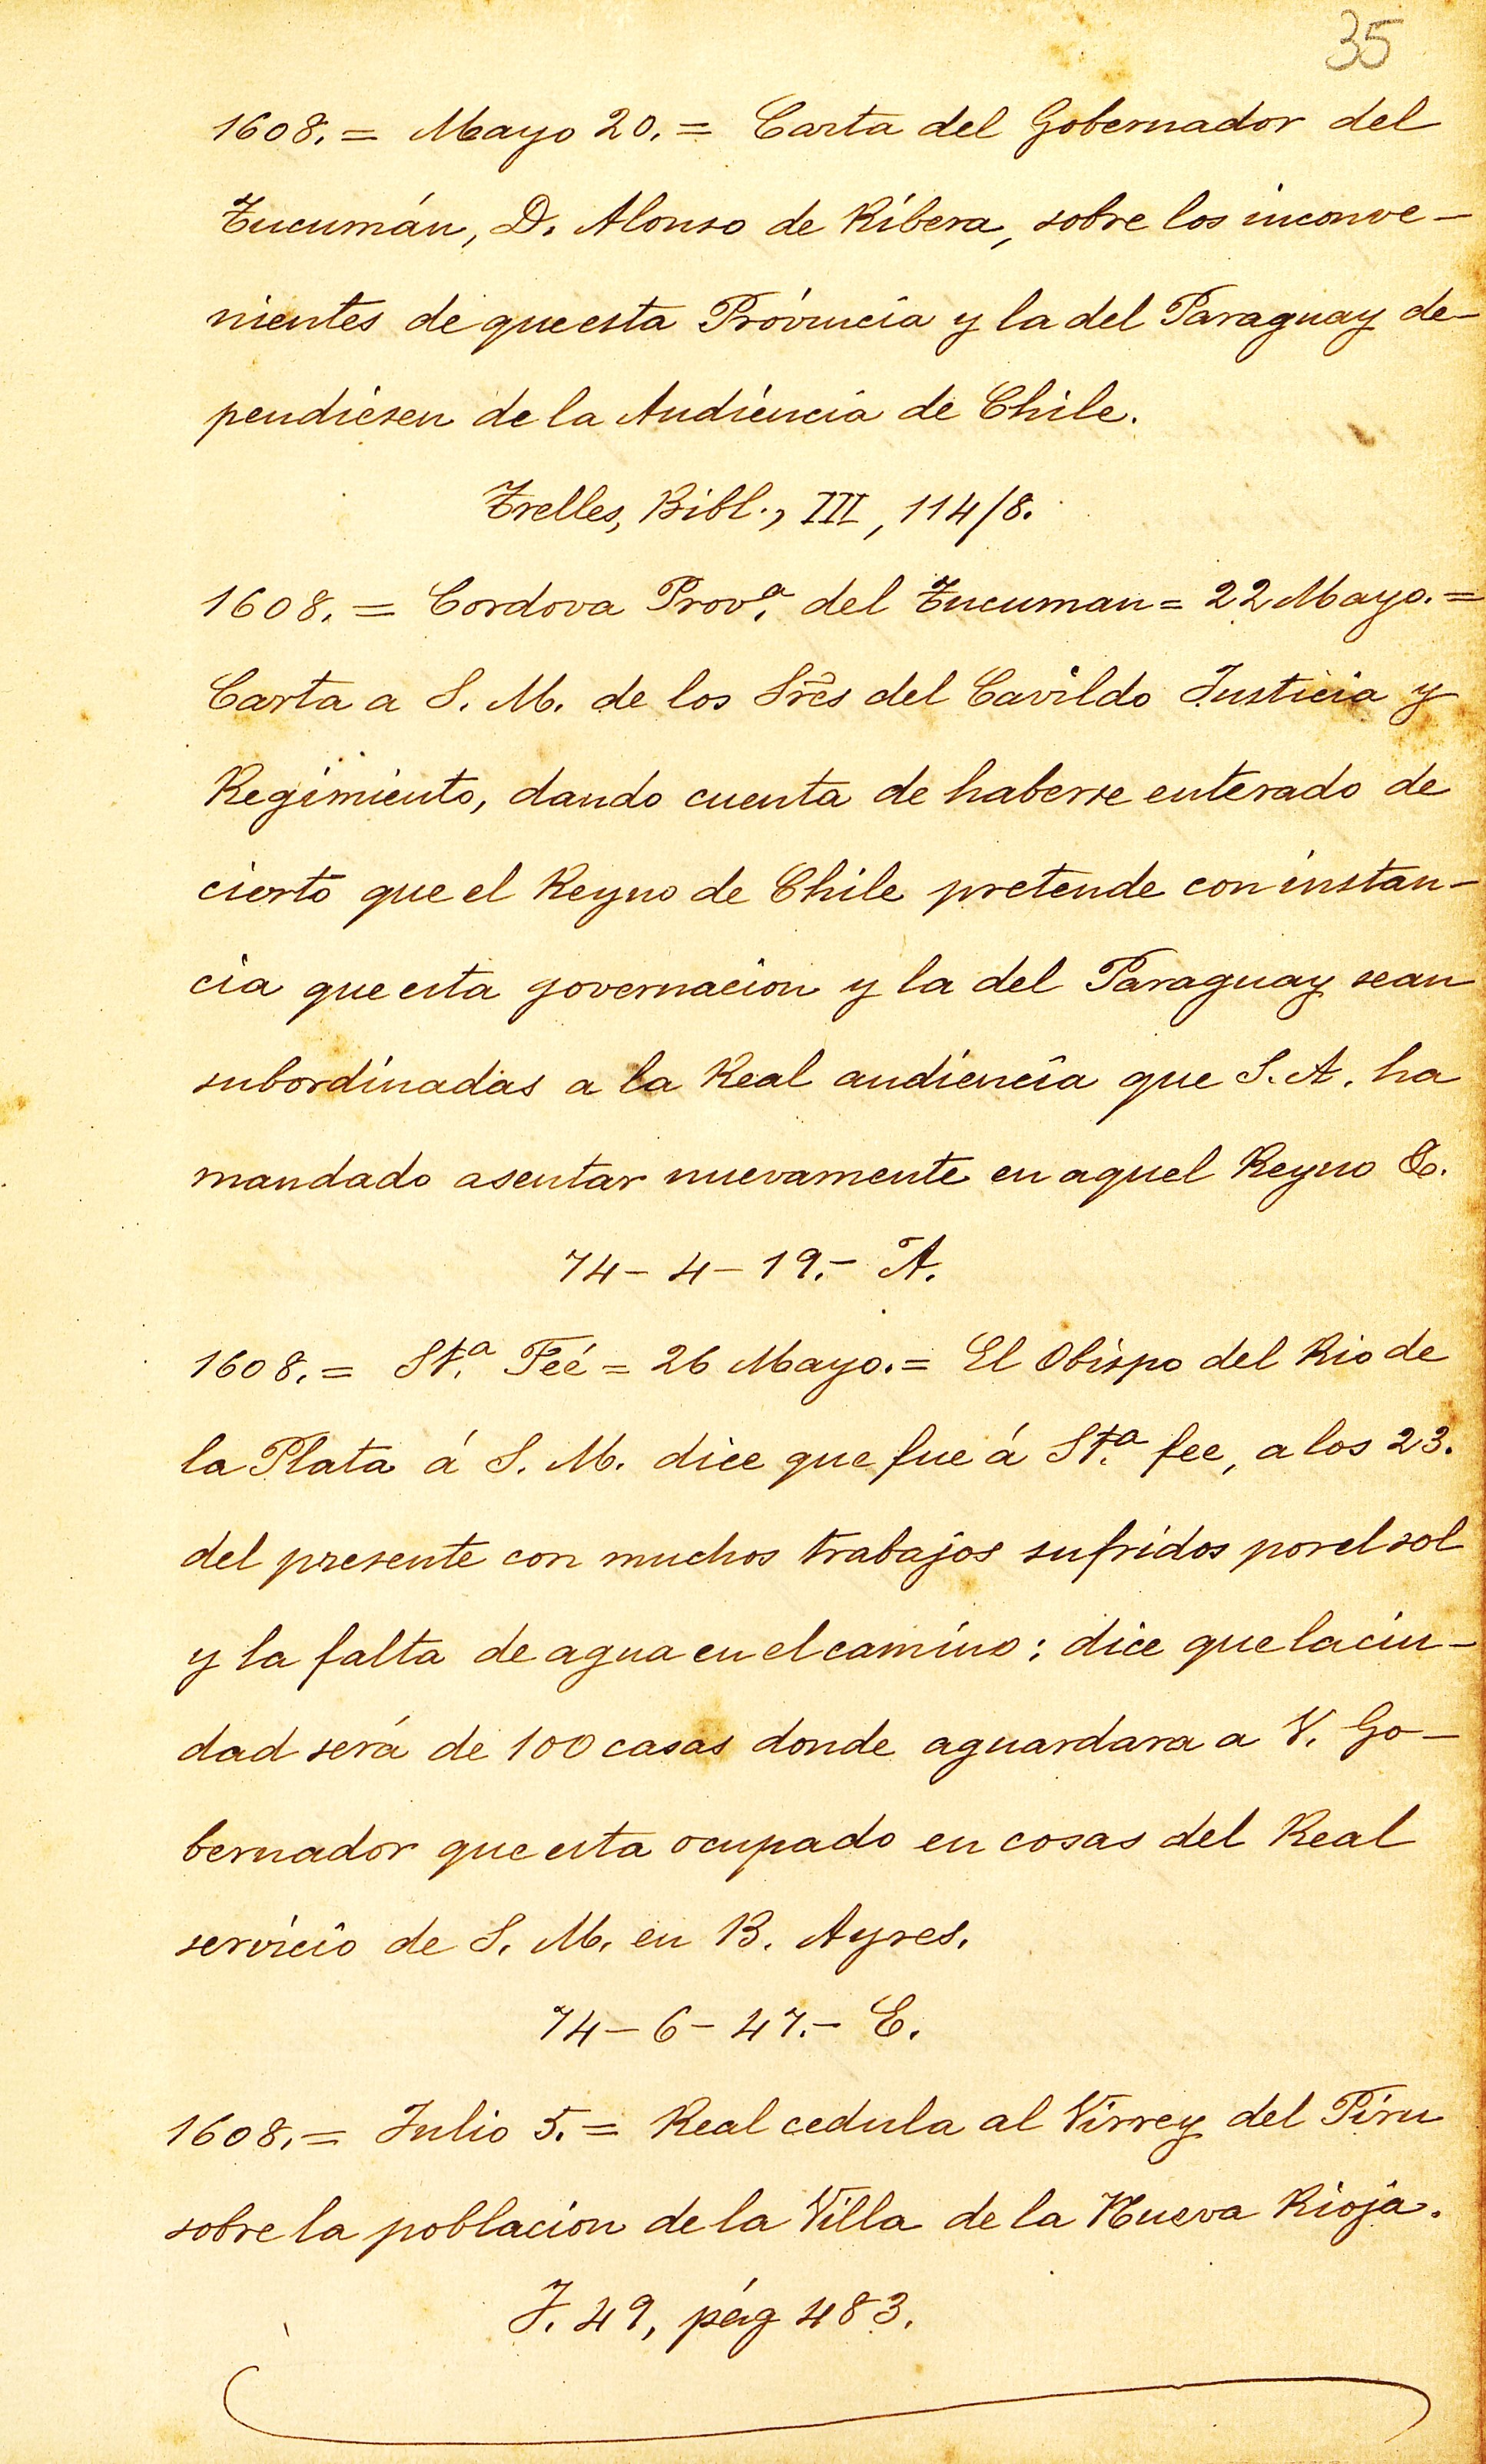 35
1608. = Mayo 20. = Carta del Gobernador del
Tucumán, D. Alonso de Ribera, sobre los inconve-
nientes de que esta Próvincia y la del Paraguay de-
pendiesen de la Audiencia de Chile.
Trelles, Bibl., III, 114/8.
1608. = Cordova Prov.ª del Tucuman = 22 Mayo. =
Carta a S. M. de los Srẽs del Cavildo Justicia y
Regimiento, dando cuenta de haberse enterado de
cierto que el Reyno de Chile pretende con instan-
cia que esta governacion y la del Paraguay sean
subordinadas a la Real audiencia que S. A. ha
mandado asentar nuevamente en aquel Reyno &.
74 - 4 - 19. - A.
1608. = St.ª Feé = 26 Mayo. = El Obispo del Rio de
la Plata á S. M. dice que fue á St.ª fee, a los 23.
del presente con muchos trabajos sufridos por el sol
y la falta de agua en el camino; dice que la ciu-
dad será de 100 casas donde aguardara a V. Go-
bernador que esta ocupado en cosas del Real
servicio de S. M. en B. Ayres.
74 - 6 - 47. - E.
1608. = Julio 5. = Real cedula al Virrey del Piru
sobre la poblacion de la Villa de la Nueva Rioja.
J. 49, pág 483.